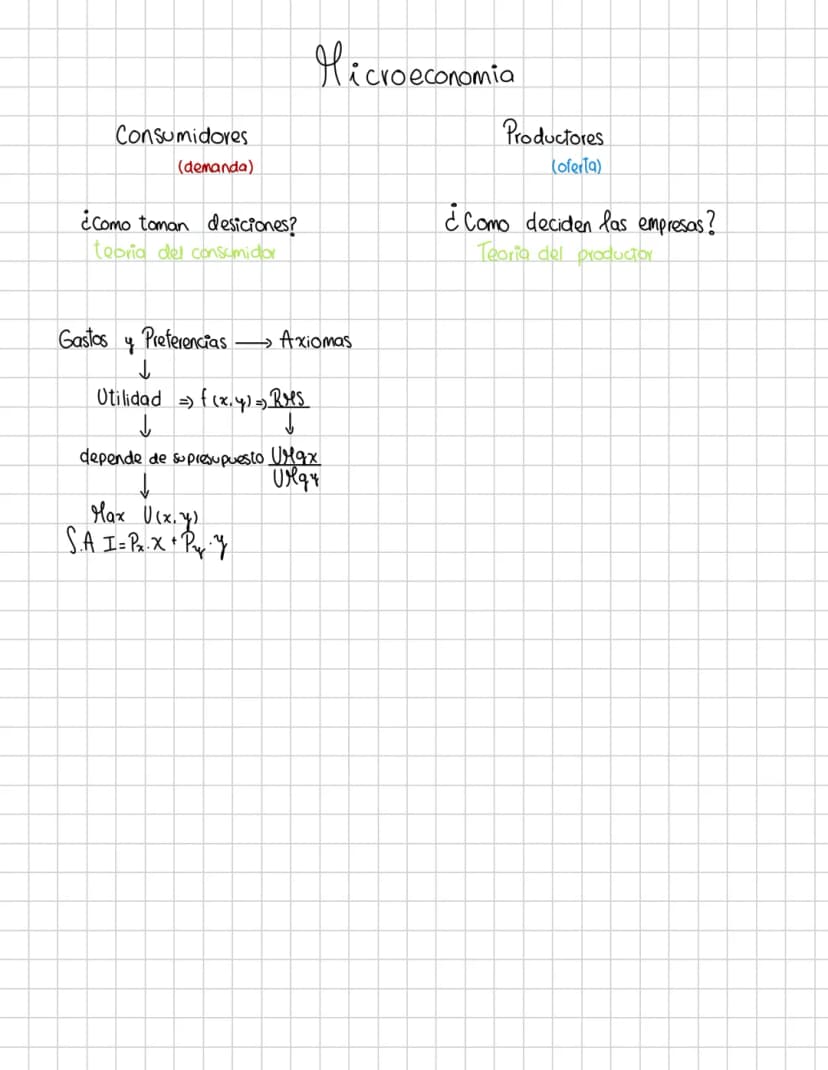 Microeconomia
Consumidores
(demanda)
¿Como toman desiciones?
teoria del consumidor
Productores
(oferta)
¿Como deciden las empresas?
Teoria del productor
Gastos y Preferencias → Axiomas
↓
Utilidad ⇒ f(x,y) ⇒ RMS
↓ ↓
depende de su presupuesto UMgx
↓ UMgy
Max U(x,y)
S.A I=Px.x+Py.y